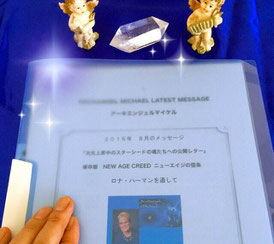 ARCHANGEL MICHAEL LATEST MESSAGE
アーキエンジェルマイケル
2018年 8月のメッセージ
"次元上昇中のスターシードの魂たちへの公開レター"
保存版 NEW AGE CREED ニューエイジの信条
ロナ・ハーマンを通して